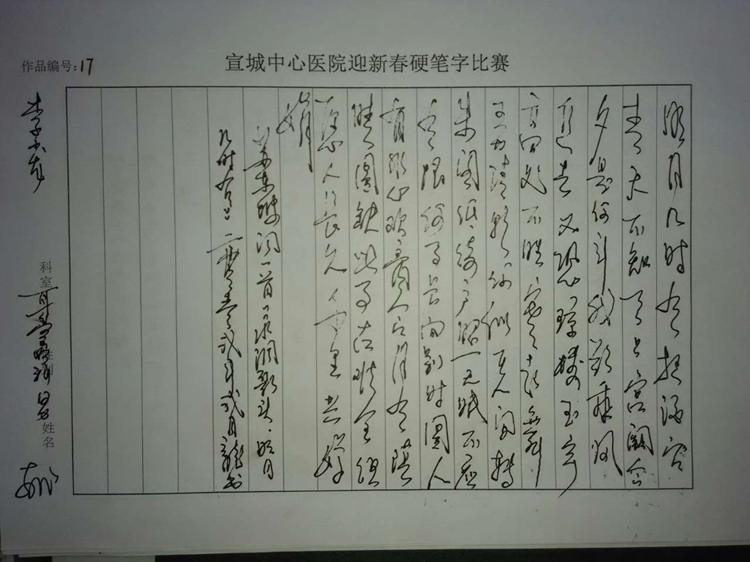 宣城中心医院迎新春硬笔字比赛
作品编号:17
明月几时有把酒问
青天不知天上宫阙今
夕是何年我欲乘风
归去又恐琼楼玉宇
高处不胜寒起舞
弄清影何似在人间转
朱阁低绮户照无眠不应
有恨何事长向别时圆人
有悲欢离合月有阴
晴圆缺此事古难全但
愿人长久千里共婵
娟
苏东坡词一首水调歌头·明月
几时有
科室
姓名